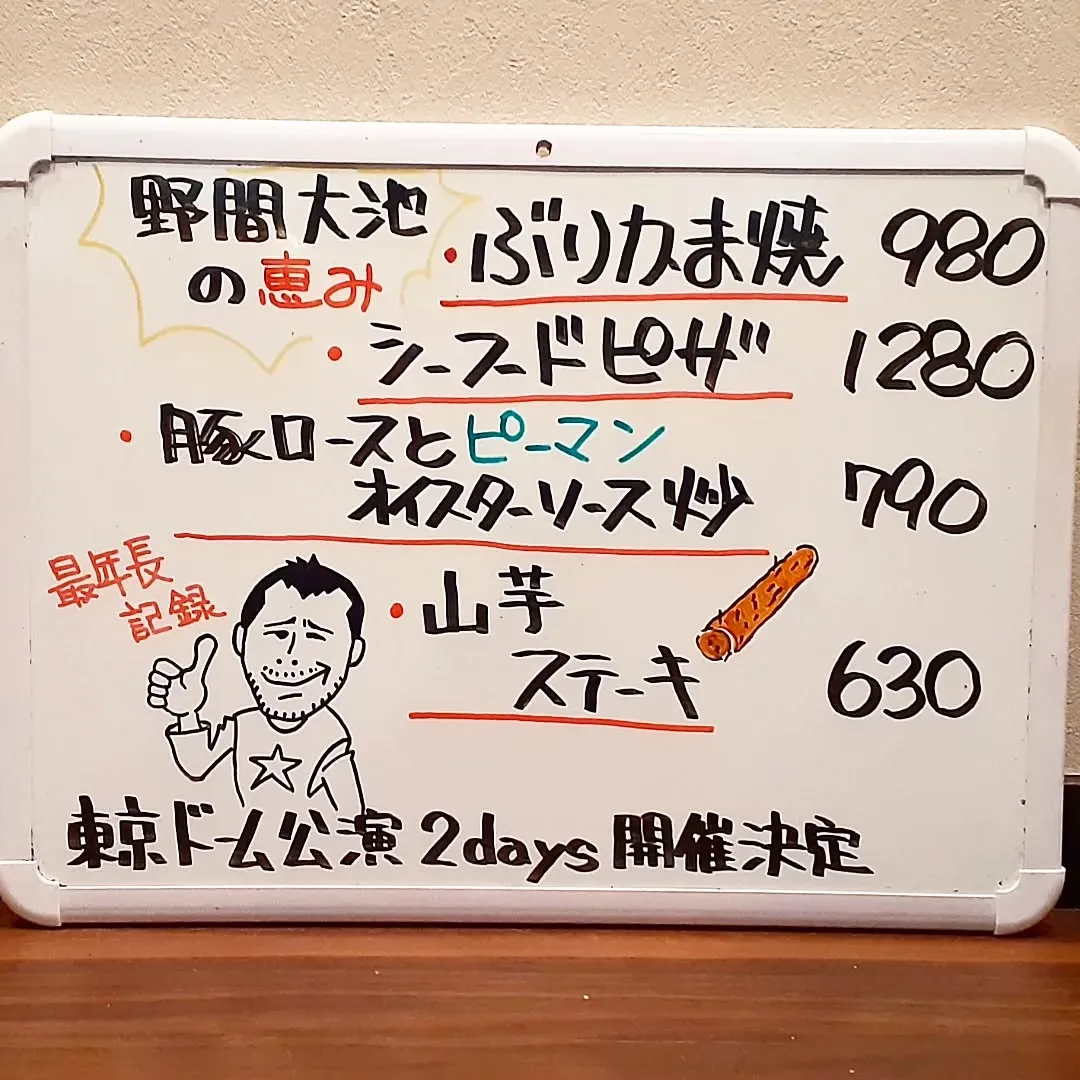 野間大池
の恵み
・ぶりかま焼 980
・シーフードピザ 1280
・豚ロースとピーマン
オイスターソース炒 790
最年長
記録
・山芋
ステーキ 630
東京ドーム公演 2days 開催決定